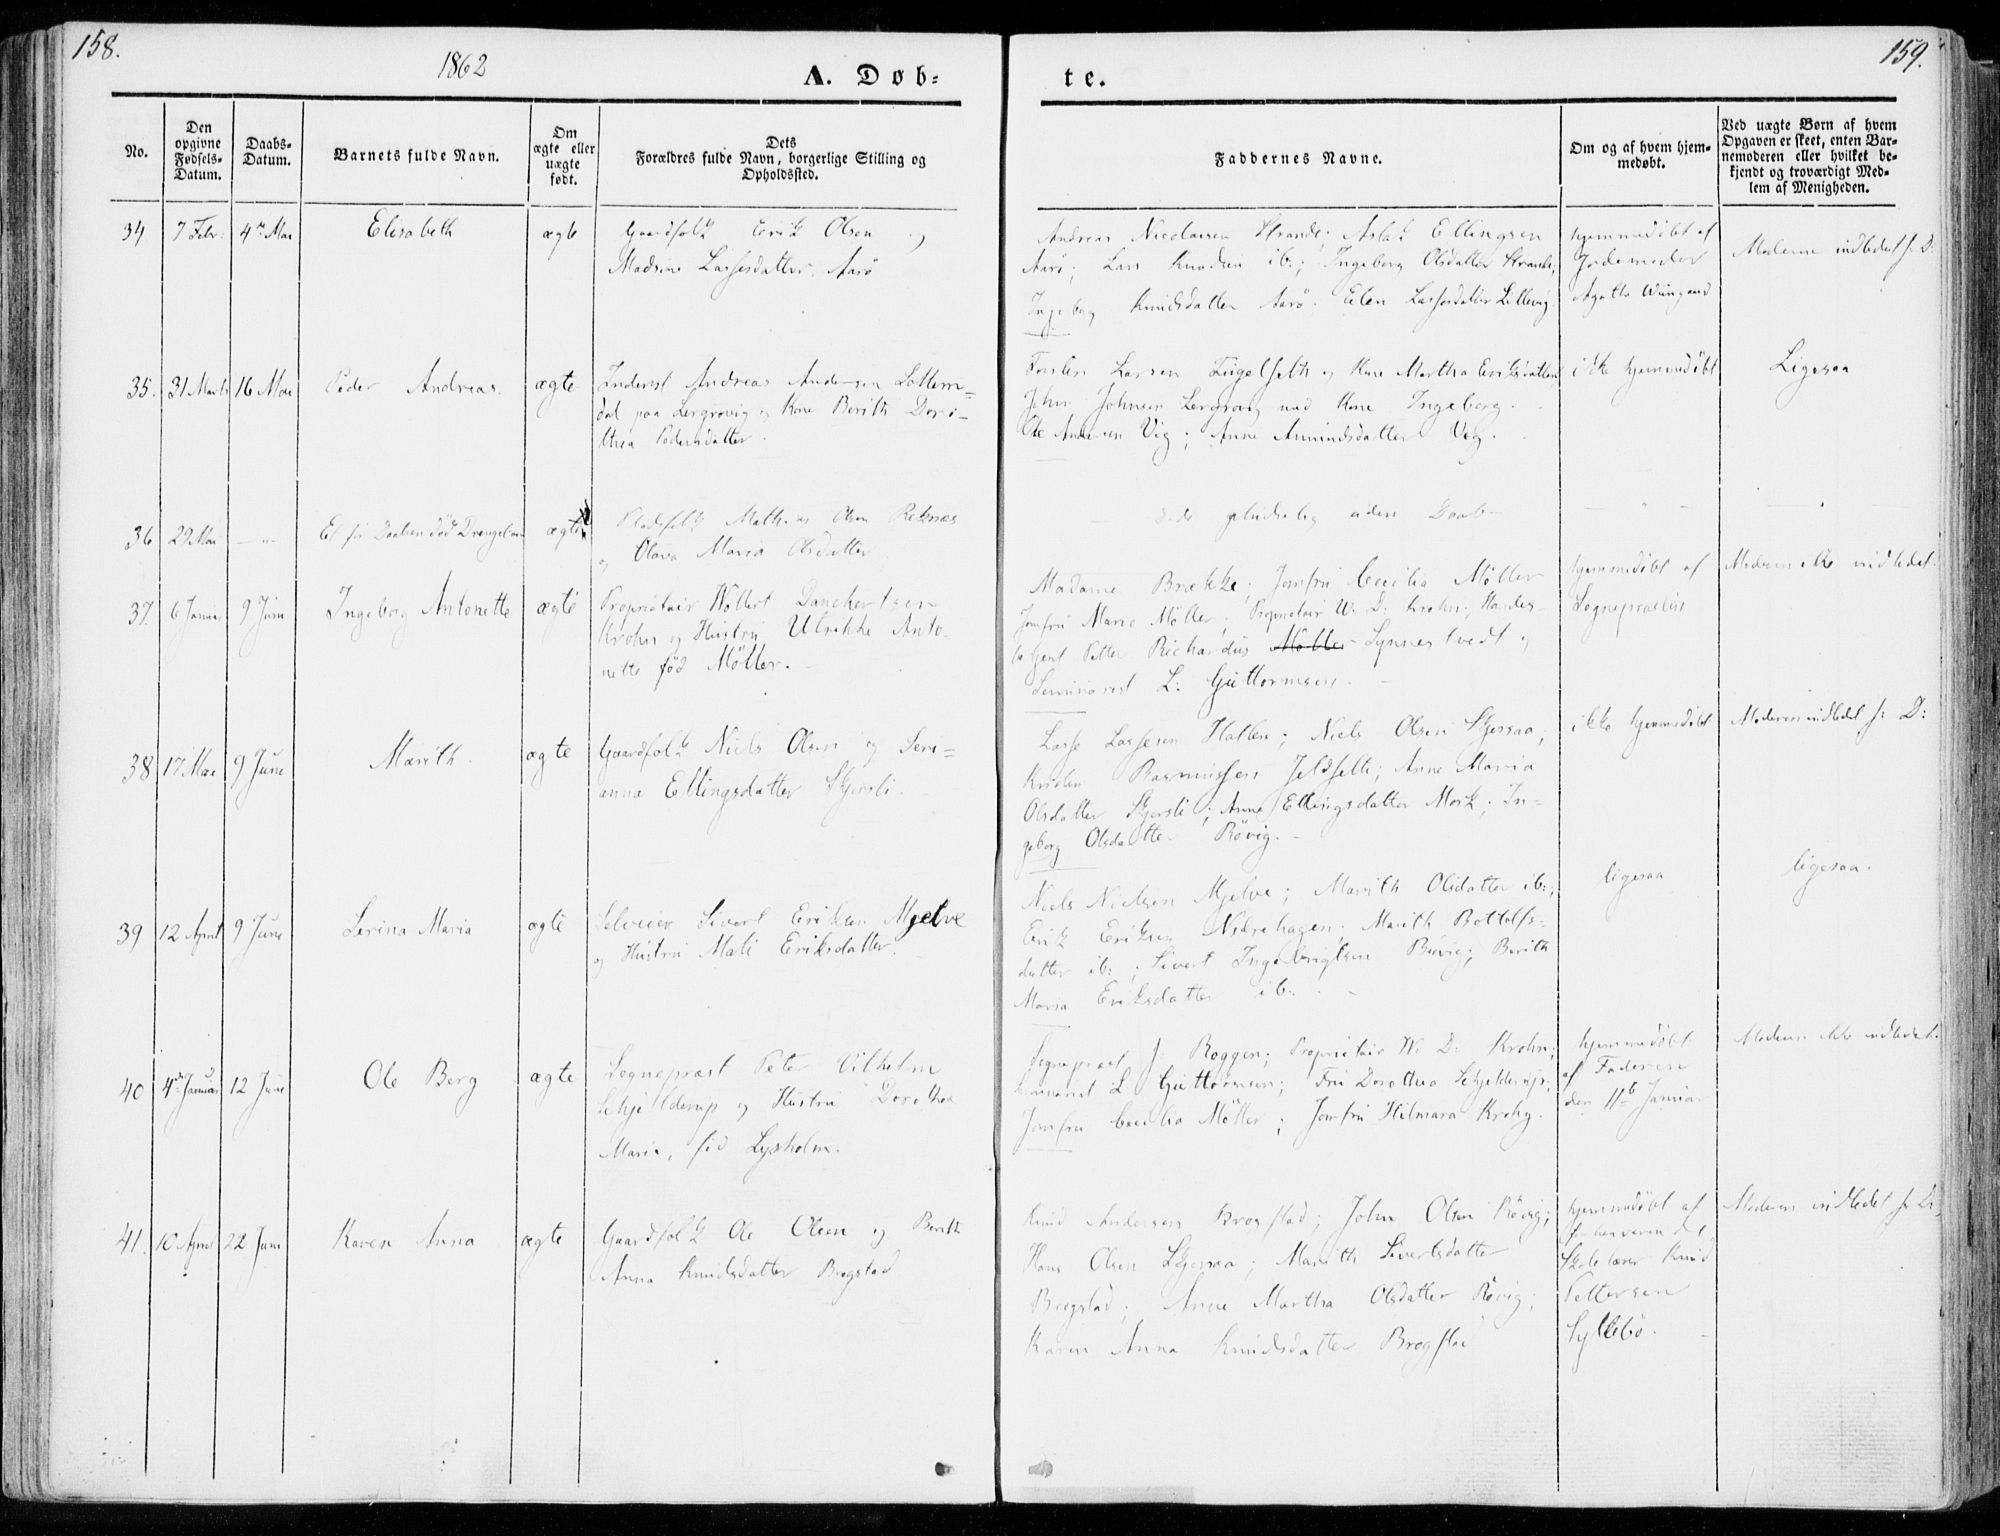 158.
1862
A. Døb-
te.
159.
No.
Den
opgivne
Fødsels-
Datum.
Daabs-
Datum.
Barnets fulde Navn.
Om
ægte eller
uægte
født.
Dets
Forældres fulde Navn, borgerlige Stilling og
Opholdssted.
Faddernes Navne.
Om og af hvem hjem-
medøbt.
Ved uægte Børn af hvem
Opgaven er skeet, enten Bar-
nemoderen eller hvilket be-
kjendt og troværdigt Med-
lem af Menigheden.
34 7 Febr: 4de Mai Elisabeth ægte Gaardfolk Erik Olsen og
Madsine Lassesdatter Aarø
Andreas Nicolaisen Strande; Aslak Ellingsen
Aarø; Lars Knudsen ib:; Ingeborg Olsdatter Strande;
Ingeborg Knudsdatter Aarø. Elen Lassesdatter Lillevig
hjemmedöbt af
Jordemoder
Agatha
Moderen indledet f. D:
35. 31 Marts 16 Mai Peder Andreas. ægte Inderst Andreas Andersen
dal paa Lergrovig og Kone Berith Doro-
thea Pedersdatter.
Larsen og Kone Martha Eriksdatter
John Johnsen Lergrovig med Kone Ingeborg.
Ole Andersen Vig; Anne Amundsdatter Vig.
ikke hjemmedöbt
Ligesaa
36 29 Mai — " — Et før Daaben död Drengebarn ægte Pladsfolk Mathias Olsen Reknæs
og Olava Maria Olsdatter
Döde pludselig uden Daab —
— " —
— " —
37. 6 Januar 9 Juni Ingeborg Antonette ægte Proprietair Wollert Danchertsen
Krohn og Hustru Ulrikke Anto-
nette fød Möller.
Madame Brække; Jomfru Cecilia Möller
Jomfru Marie Möller; Proprietair W: D: Krohn; Handels-
Petter Richardus Möller Synnestvedt og
Seminarist L: Guttormsen.
hjemmedöbt af
Sognepræsten
Moderen ikke indledet.
38 17 Mai 9 June Marith. ægte Gaardfolk Niels Olsen og Seri-
anna Ellingsdatter Skjersli.
Lasse Lassesen Hatlen; Niels Olsen Skjersaa;
Kristen Rasmussen; Anne Maria
Olsdatter Skjersli; Anne Ellingsdatter Mork; In-
geborg Olsdatter Rövig.
ikke hjemmedöbt
Moderen indledet f: D:
39 12 April 9 June Serina Maria ægte Selveier Sivert Eriksen Mjelve
og Hustru Mali Eriksdatter.
Niels Nielsen Mjelve; Marith Olsdatter ib:;
Erik Eriksen Nedrehagen; Marith Bottolfs-
datter ib:; Sivert Ingebrigtsen; Berith
Maria Eriksdatter ib:
ligesaa
ligesaa.
40 4de Januar 12 June Ole Berg ægte Sognepræst Peter Vilhelm
Schjelderup og Hustru Dorothea
Maria, född Lysholm.
Sognepræst J: Roggen; Proprietair W: D: Krohn;
Seminarist L: Guttormsen; Fru Dorothea Schjelderup;
Jomfru Cecilia Möller; Jomfru Hilmara Krohn.
hjemmedöbt
af Faderen
den 11te Januar
Moderen ikke indledet.
41. 10 April 22 June Karen Anna ægte Gaardfolk Ole Olsen og Berith
Anna Knudsdatter Bregstad
Knud Andersen Bregstad; John Olsen Rövig;
Hans Olsen Skjersaa; Marith Sivertsdatter
Bregstad; Anne Martha Olsdatter Rövig;
Karen Anna Knudsdatter Bregstad
hjemmedöbt af
forhenværende
Skolelærer Knud
Pettersen
Syltebö.
Moderen indledet f. D: